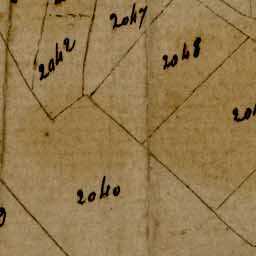 2047
2042
2048
2040